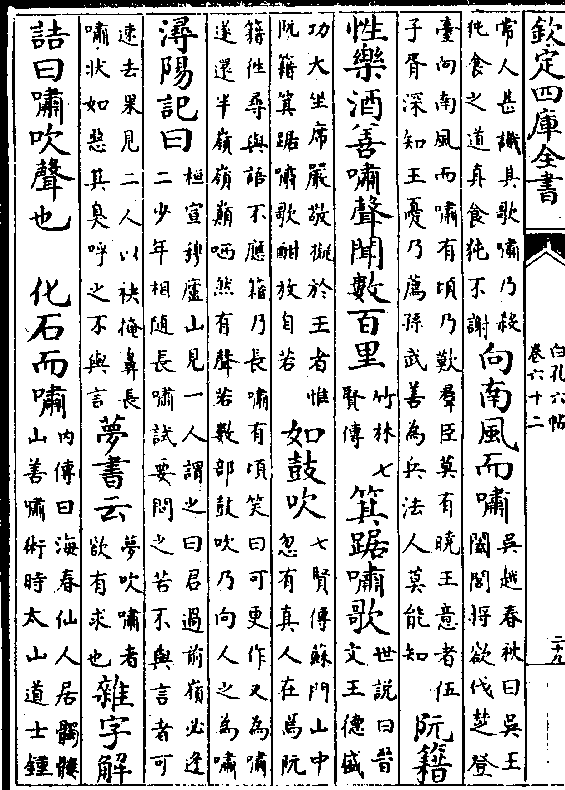 欽定四庫全書
白孔六帖
卷六十二
二十九
常人甚譏其歌嘯乃殺
㹠食之道真食㹠不謝
向南風而嘯
吳越春秋曰吳王
闔閭將欲伐楚登
臺向南風而嘯有頃乃歎羣臣莫有曉王意者伍
子胥深知王憂乃薦孫武善為兵法人莫能知
阮籍
性樂酒善嘯聲聞數百里
竹林七
賢傳
箕踞嘯歌
世說曰昔
文王德盛
功大坐席嚴敬擬於王者惟
阮籍箕踞嘯歌酣放自若
如鼓吹
七賢傳蘇門山中
忽有真人在焉阮
籍徃尋與語不應籍乃長嘯有頃笑曰可更作又為嘯
遂還半嶺嶺巔哂然有聲若數部鼓吹乃向人之為嘯
潯陽記曰
桓宣穆廬山見一人謂之曰君過前嶺必逢
二少年相随長嘯試要問之若不與言者可
速去果見二人以袂掩鼻長
嘯狀如惡其臭呼之不與言
夢書云
夢吹嘯者
欲有求也
雜字解
詰曰嘯吹聲也
化石而嘯
內傳曰海春仙人居髑髏
山善嘯術時太山道士鍾